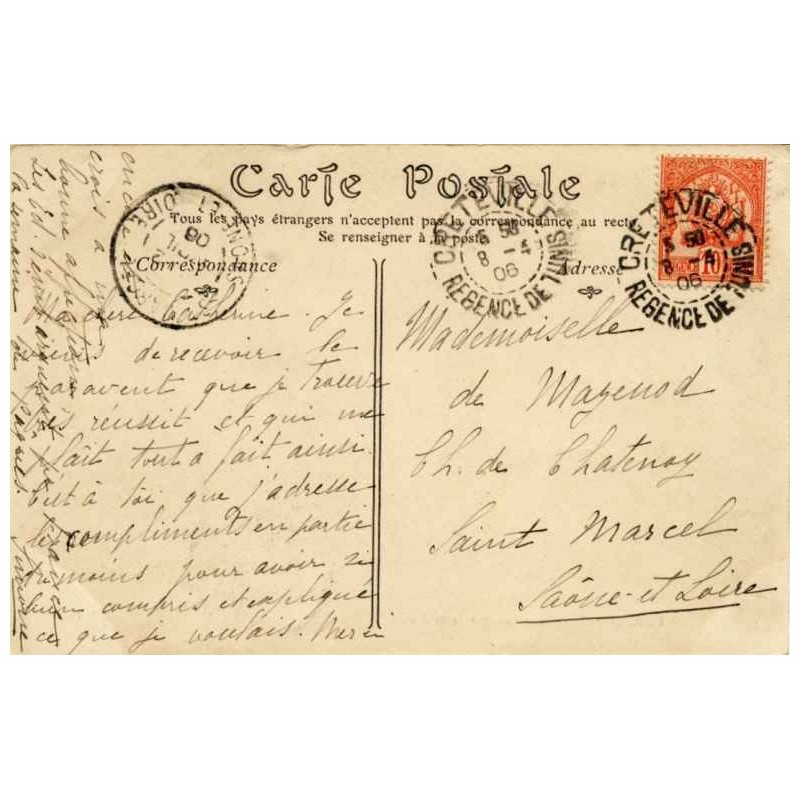 Carte Postale
Tous les pays étrangers n'acceptent pas la correspondance au recto
Se renseigner à la poste
Correspondance
Adresse
CRETEVILLE
5 50
8 - 4
06
REGENCE DE TUNIS
CRETEVILLE
5 50
8 - 4
06
REGENCE DE TUNIS
10
SAONE-ET-LOIRE
06
Je
viens de recevoir le
paravent que je trouve
très réussit et qui me
plaît tout à fait ainsi.
C'est à toi que j'adresse
les compliments en partie
du moins pour avoir si
bien compris et expliqué
ce que je voulais. Merci
encore
crois à
bonne
Les Ed.
la semaine de Pâques.
Simone
Mademoiselle
de Mazenod
Ch. de Chatenoy
Saint Marcel
Saône-et-Loire